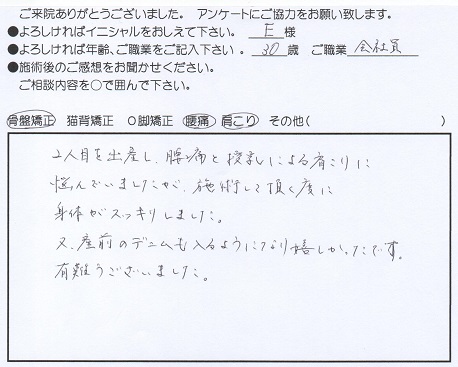 ご来院ありがとうございました。 アンケートにご協力をお願い致します。
●よろしければイニシャルをおしえて下さい。 E 様
●よろしければ年齢、ご職業をご記入下さい 。 30 歳 ご職業 会社員
●施術後のご感想をお聞かせください。
ご相談内容を○で囲んで下さい。
骨盤矯正 猫背矯正 O脚矯正 腰痛 肩こり その他( )
2人目を出産し、腰痛と授乳による肩こりに
悩んでいましたが、施術して頂く度に
身体がスッキリしました。
又、産前のデニムも入るようになり嬉しかったです。
有難うございました。